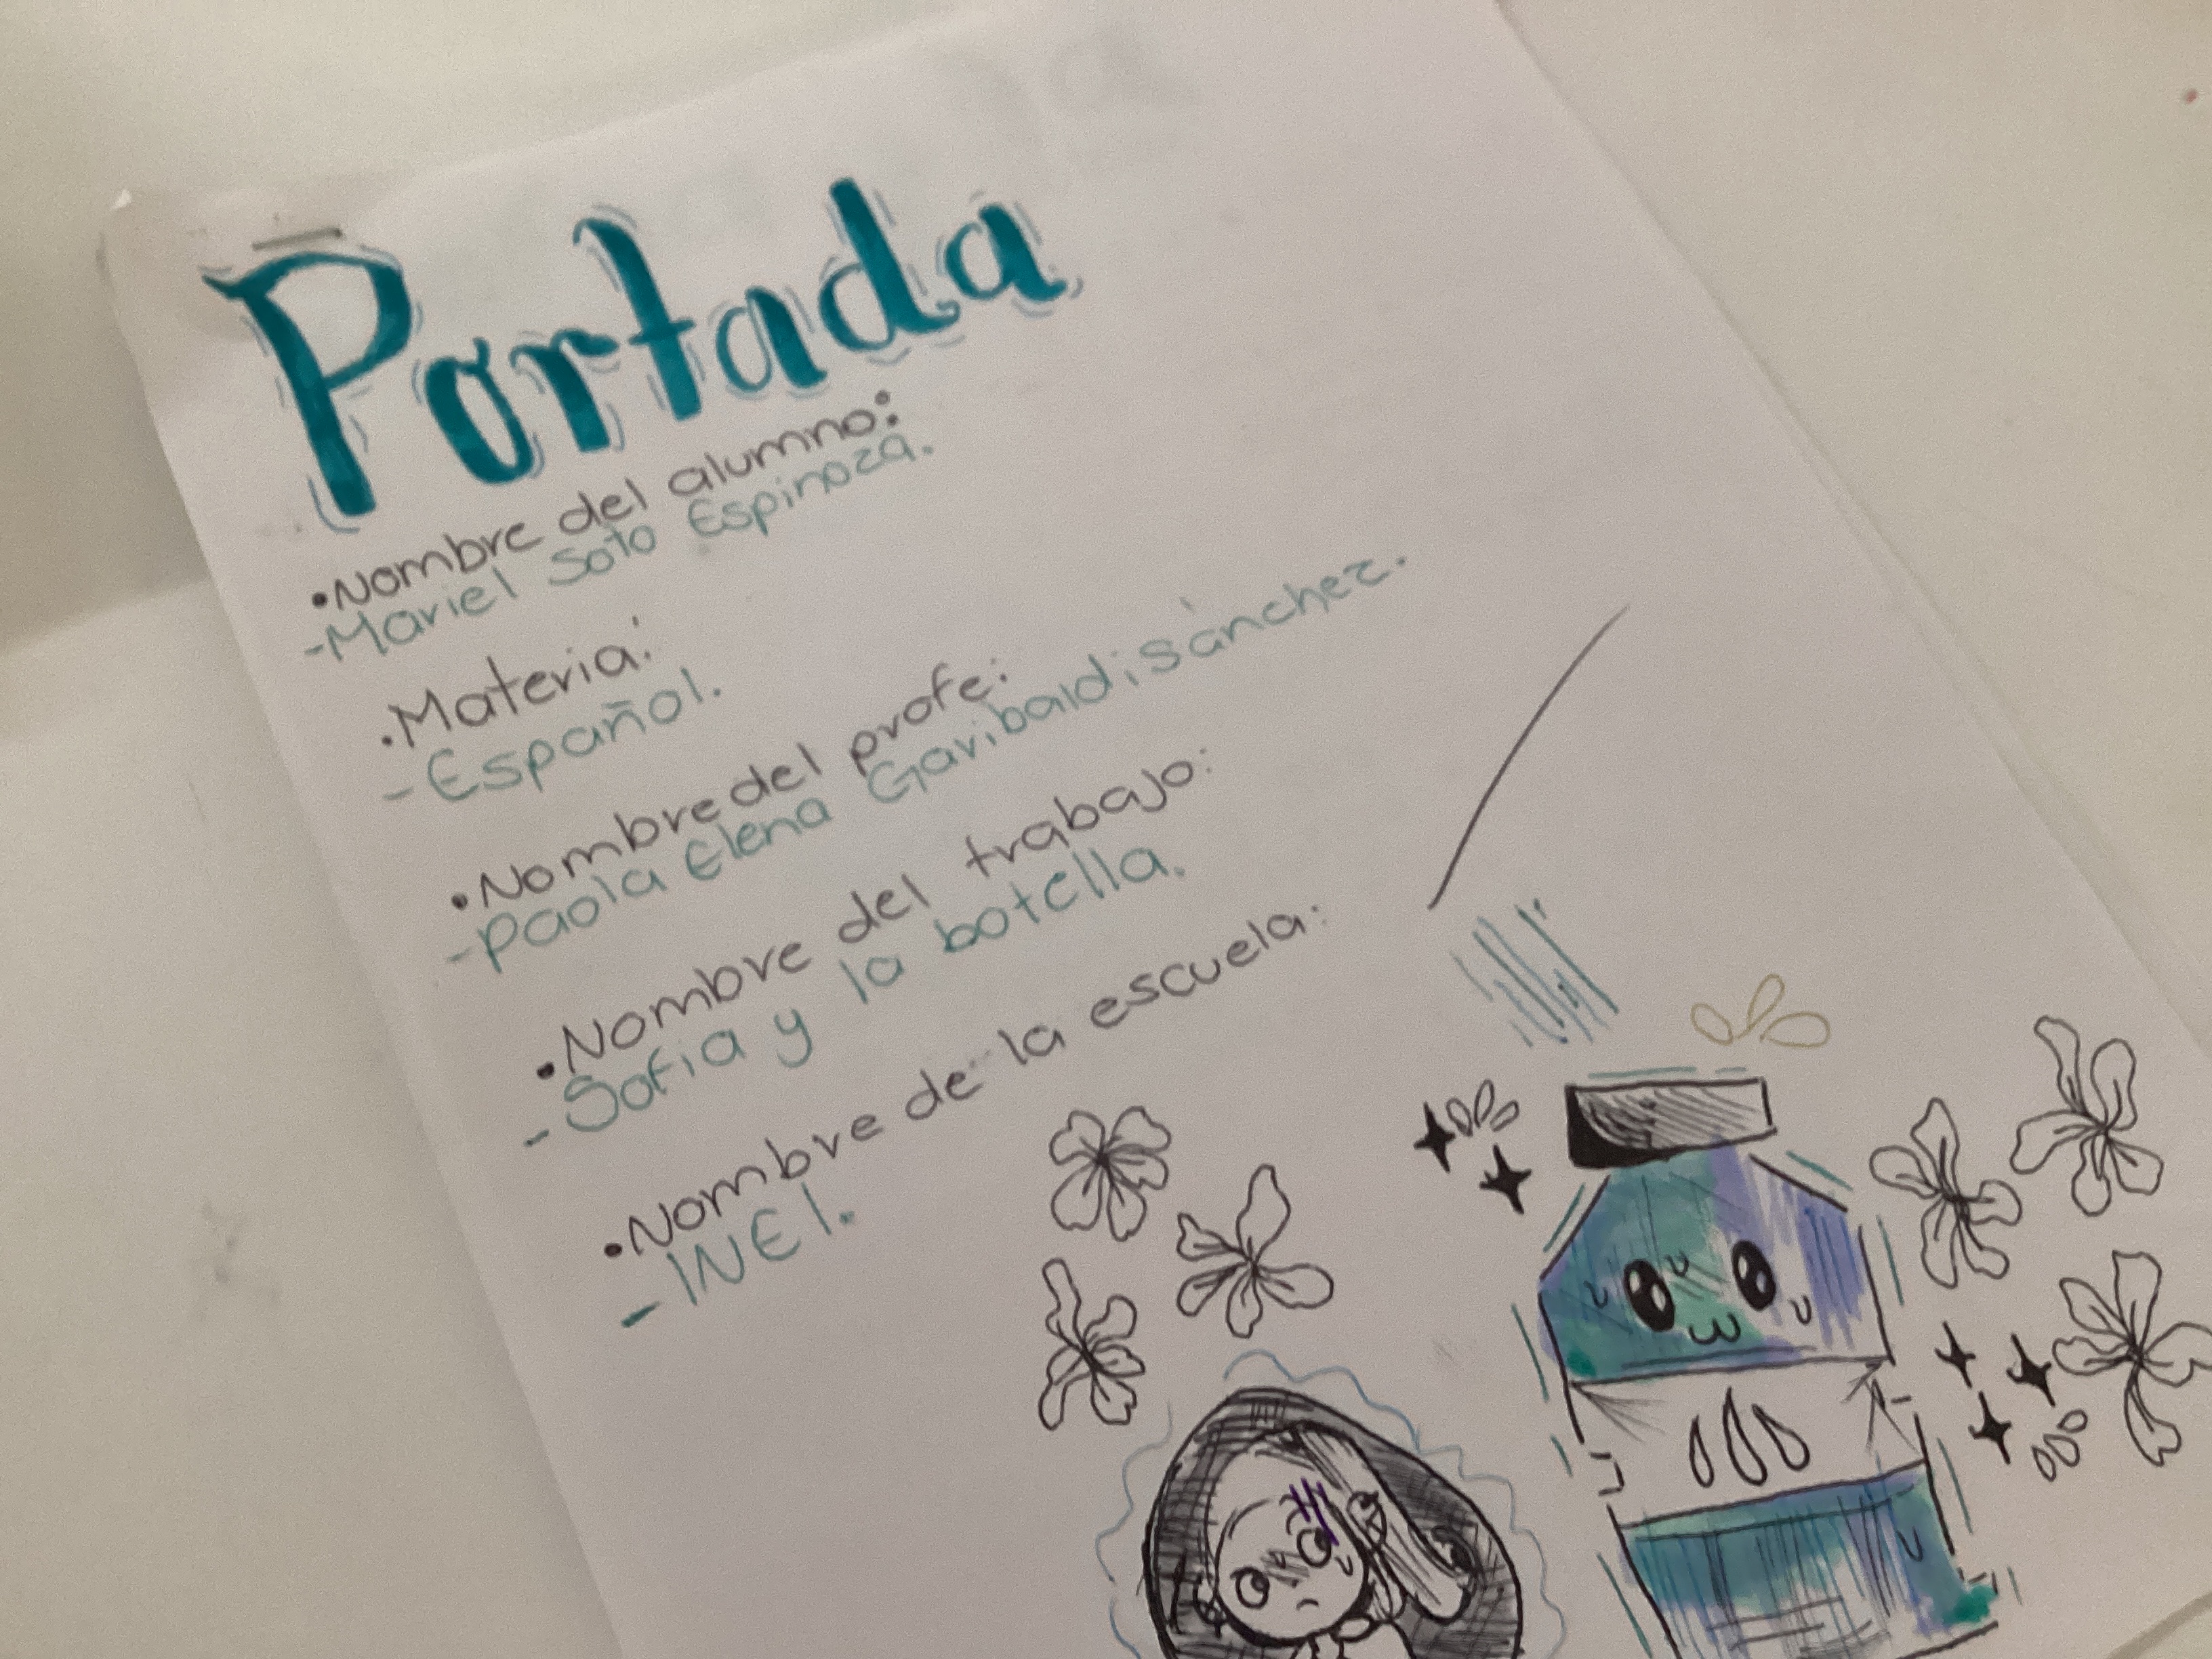 Portada
•Nombre del alumno:
-Mariel Soto Espinoza.
•Materia:
-Español.
•Nombre del profe:
-Paola Elena Garibaldi sànchez.
•Nombre del trabajo:
-Sofia y la botella.
•Nombre de la escuela:
-INEI.